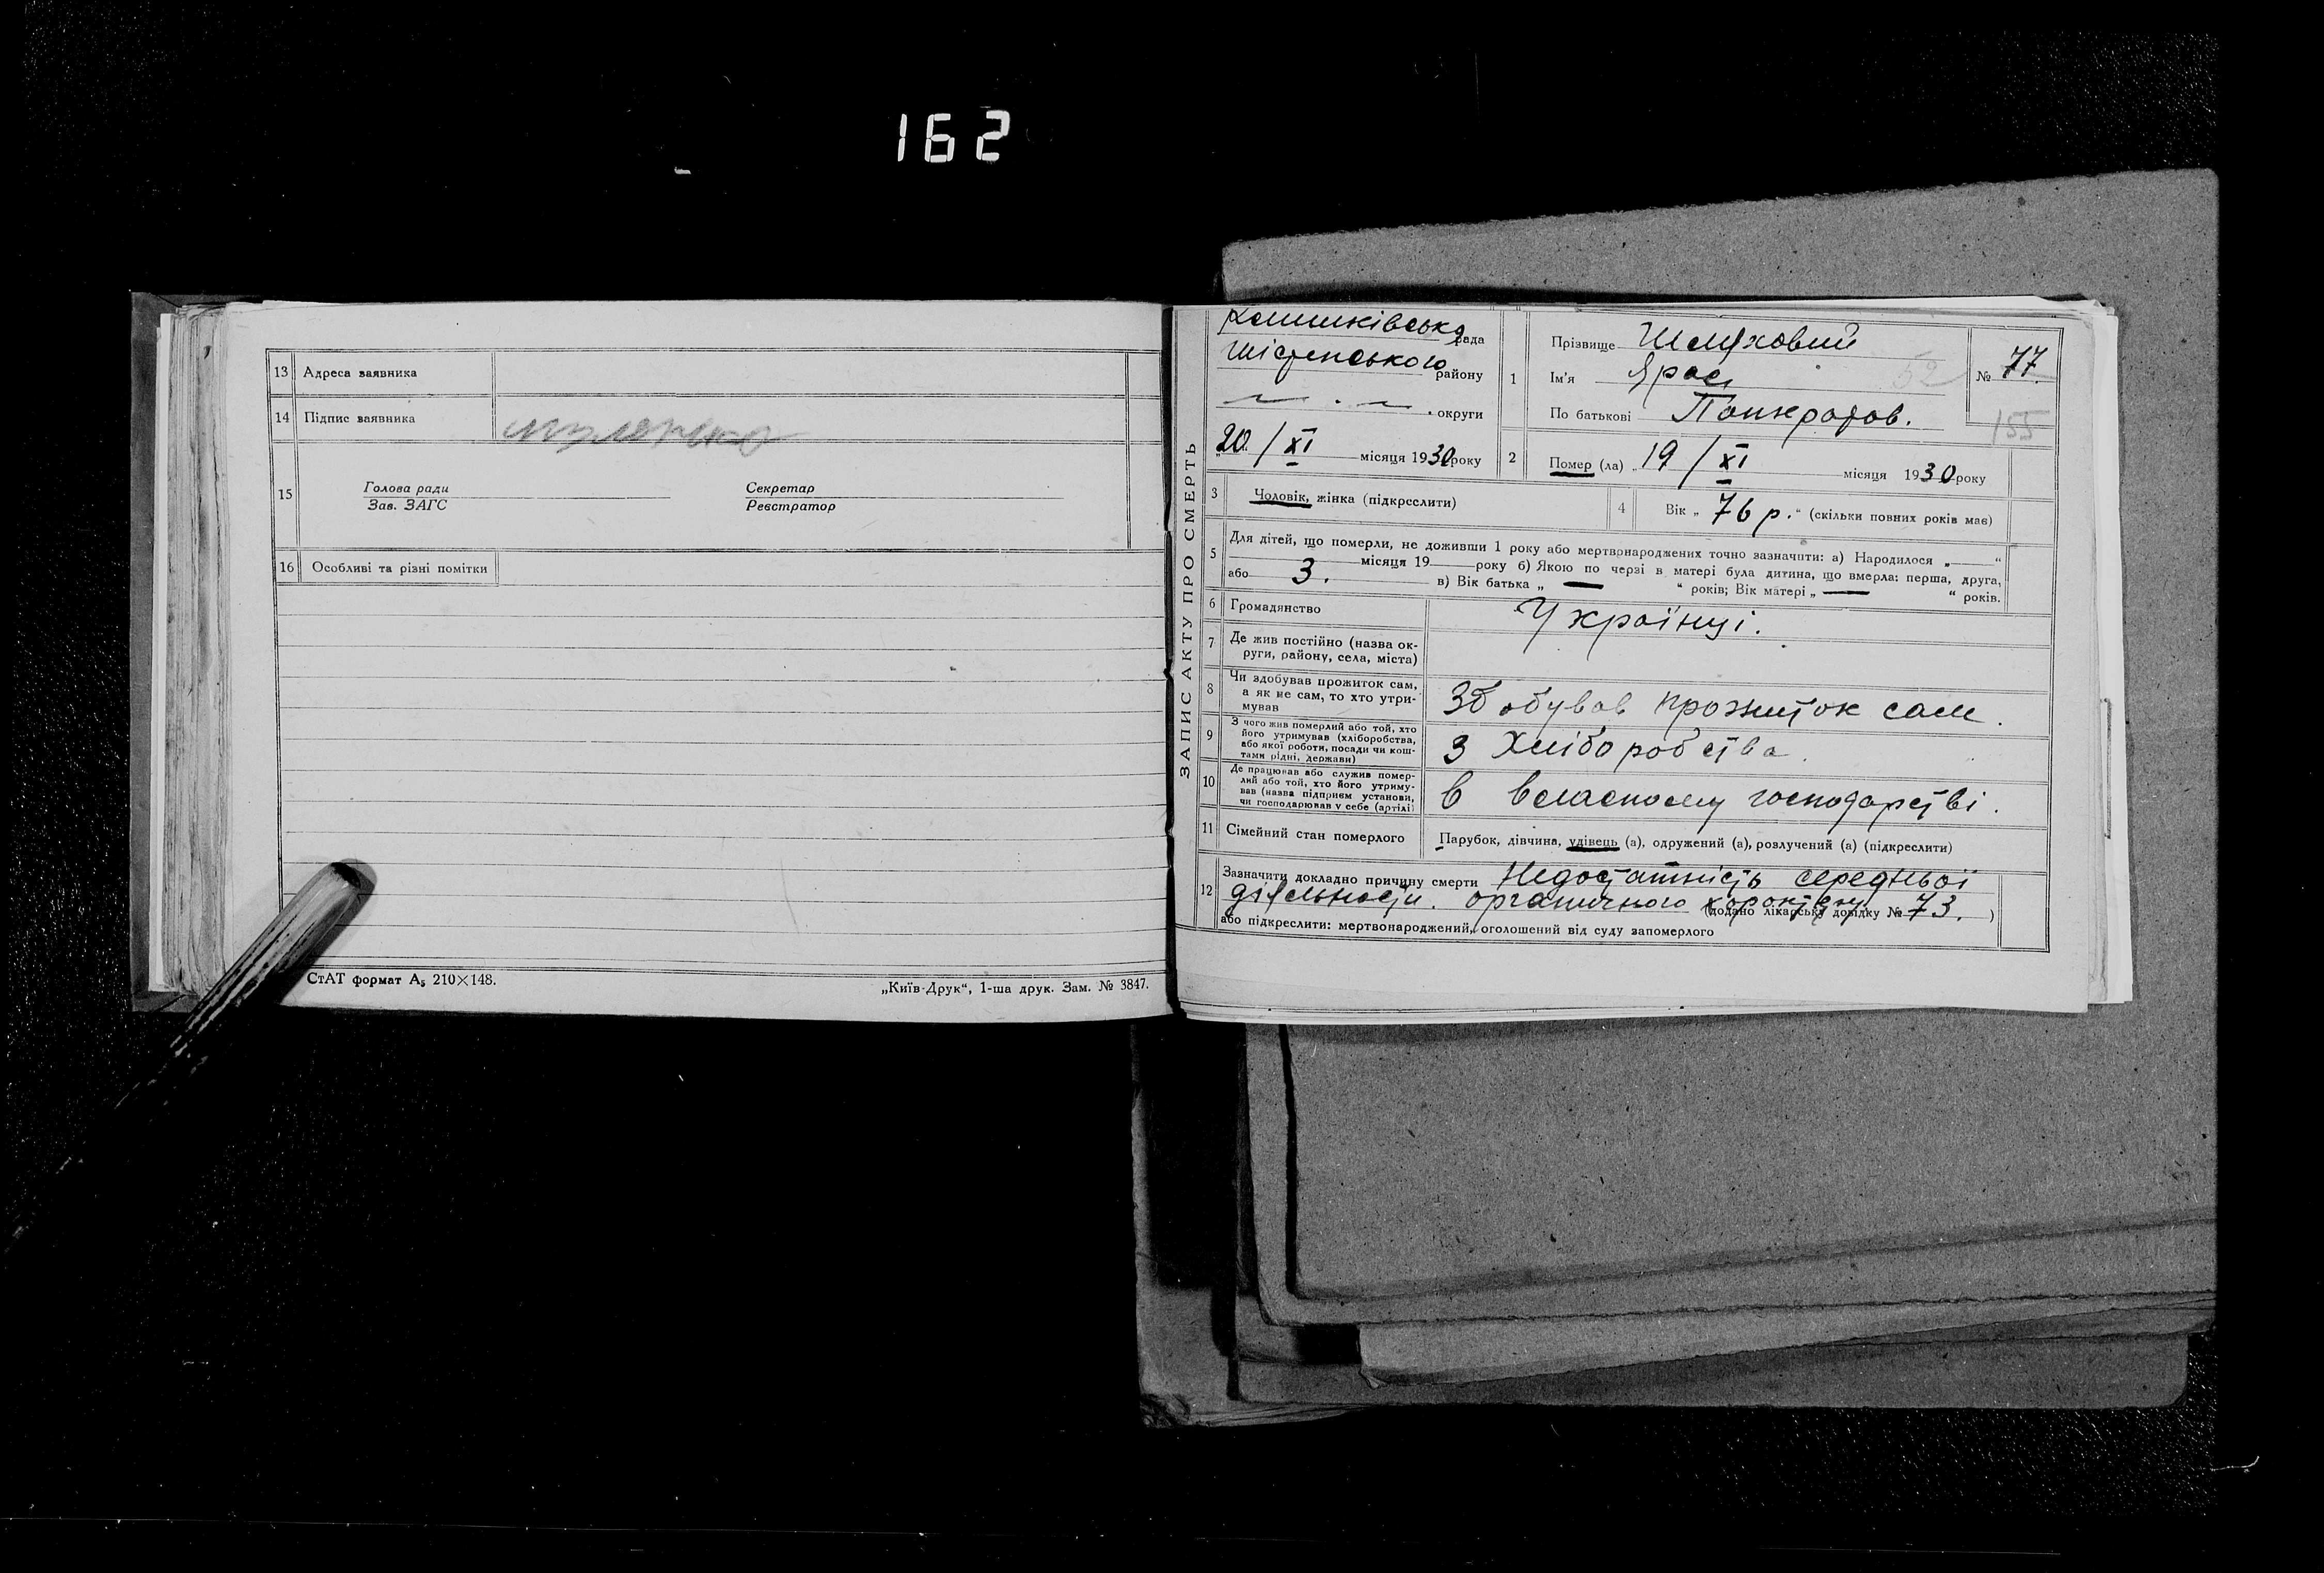 162
13 Адреса заявника
14 Підпис заявника
15 Голова ради
Зав. ЗАГС
Секретар
Реєстратор
16 Особливі та різні помітки
СтАТ формат А5 210×148.
„Київ-Друк“, 1-ша друк. Зам. № 3847.
ЗАПИС АКТУ ПРО СМЕРТЬ
рада
району
округи
20/XI місяця 1930 року
1 Прізвище
Ім'я
По батькові Панкратов.
№ 77
155
2 Помер (ла) „19/XI місяця 1930 року
3 Чоловік, жінка (підкреслити)
4 Вік „76 р.“ (скільки повних років має)
5 Для дітей, що померли, не доживши 1 року або мертвонароджених точно зазначити: а) Народилося „ “
місяця 19 року б) Якою по черзі в матері була дитина, що вмерла: перша, друга,
або 3. в) Вік батька „ — “ років; Вік матері „ — “ років.
6 Громадянство Українці.
7 Де жив постійно (назва ок-
руги, району, села, міста)
8 Чи здобував прожиток сам,
а як не сам, то хто утри-
мував
Здобував прожиток сам.
9 З чого жив померлий або той, хто
його утримував (хліборобства,
або якої роботи, посади чи кош-
тами рідні, держави)
З хліборобства.
10 Де працював або служив помер-
лий або той, хто його утриму-
вав (назва підприєм установи,
чи господарював у себе (артілі)
В власному господарстві.
11 Сімейний стан померлого Парубок, дівчина, удівець (а), одружений (а), розлучений (а) (підкреслити)
12 Зазначити докладно причину смерти Недостатність середньої
діяльности. органичного (додано лікарську довідку № 73. )
або підкреслити: мертвонароджений, оголошений від суду запомерлого